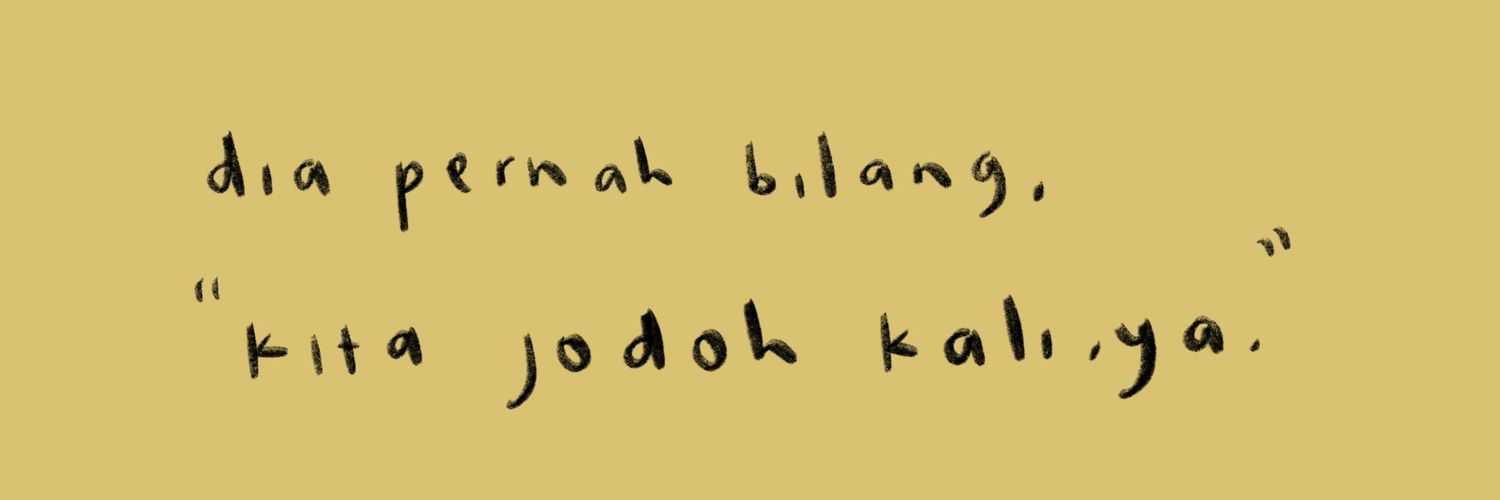 dia pernah bilang,
"kita jodoh kali, ya."